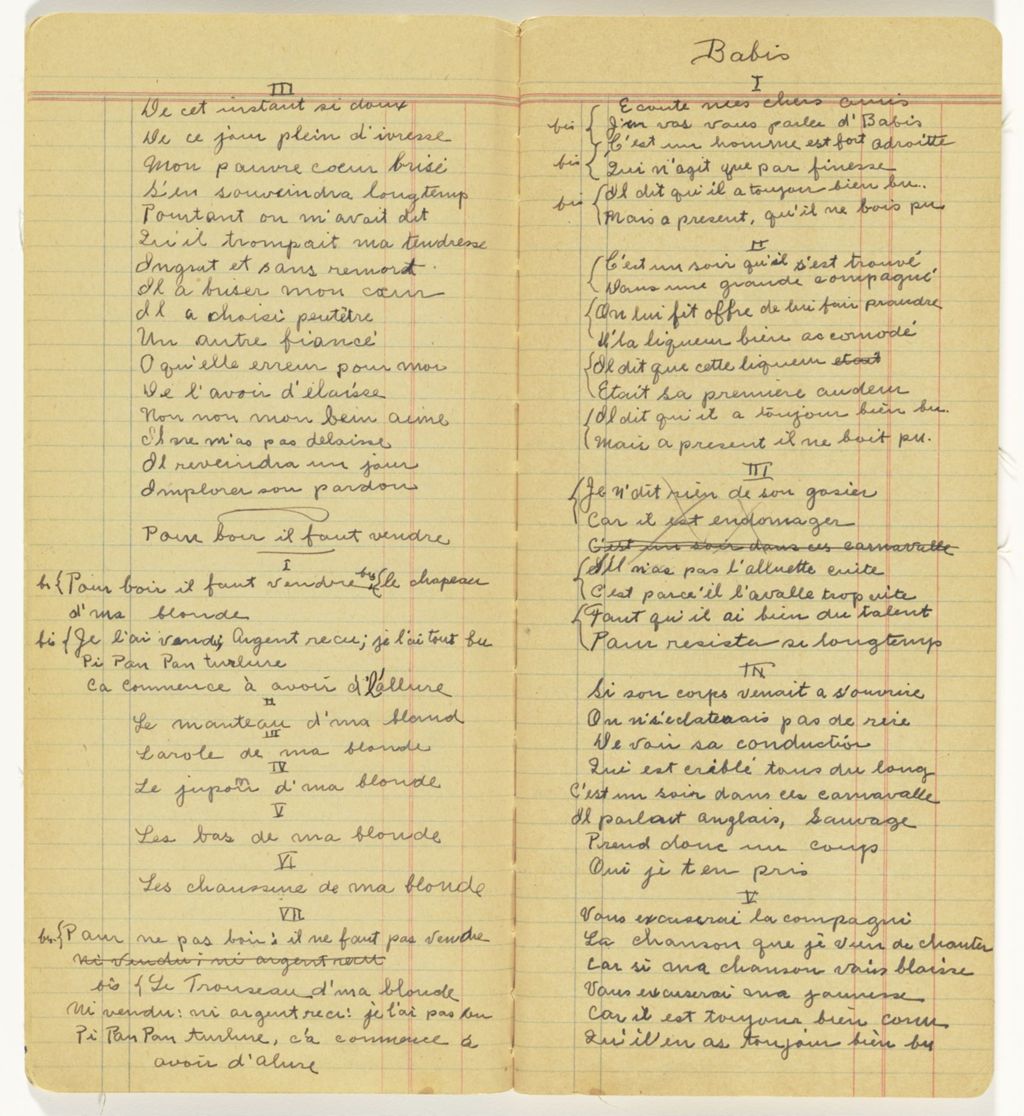 III
De cet instant si doux
De ce jour plein d'ivresse
Mon pauvre coeur brisé
S'en souveindra longtemp
Pourtant on m'avait dit
Qu'il trompait ma tendresse
Ingrat et sans remort
Il a buser mon coeur
Il a choisi peutêtre
Un autre fiancé
O qu'elle erreur pour moi
De l'avoir d'élaisse
Non non mon bein aime
Il ne m'as pas delaisse
Il reveindra un jour
Implorer son pardon
Pour boir il faut vendre
I
bis { Pour boir il faut vendre bis { le chapeau
d'ma blonde
bis { Je l'ai vendu, Argent recu; je l'ai tout bu
Pi Pan Pan turlure
ca commence à avoir d'l'allure
II
Le manteau d'ma blond
III
Larole de ma blonde
IV
Le jupon d'ma blonde
V
Les bas de ma blonde
VI
Les chaussure de ma blonde
VII
bis { Pour ne pas boir: il ne faut pas vendre
ni vendu; ni argent recu
bis { Le Trouseau d'ma blonde
Ni vendu: ni argent recu: je l'ai pas bu
Pi Pan Pan turlure, c'a commence à
avoir d'alure
Babis
I
Ecoute mes chers amis
bis { J'm vas vous parler d'Babis
C'est un homme est fort adroitte
bis { Qui n'agit que par finesse
Il dit qu'il a toujour bien bu..
bis { Mais a present, qu'il ne bois pu
II
C'est un soir qu'il s'est trouvé
Dans une grande compagné
On lui fit offre de lui fair prandre
D'la liqueur bien accomodé
Il dit que cette liqueur etait
Etait sa première audeur
Il dit qu'il a toujour bièn bu..
Mais a present il ne boit pu.
III
Je n'dit rièn de son gosier
Car il est endomager
C'est un soir dans ces carnavalle
S'il n'as pas l'alluette cuite
C'est parce'il l'avalle trop vite
Faut qu'il ai bien du talent
Pour resister si longtemp
IV
Si son corps venait a s'ouvrire
On n's'eclaterais pas de rire
De voir sa conduction
Qui est crèblé tous du long
C'est un soir dans ces carnavalle
Il parlait anglais, Sauvage
Prend donc un coup
Oui jè t'en pris
V
Vous excuserai la compagni
La chanson que jè vien de chanter
Car si ma chanson vous blaisse
Vous excuserai ma jeunesse
Car il est toujour bièn conu
Qu'il'en as toujour bièn bu